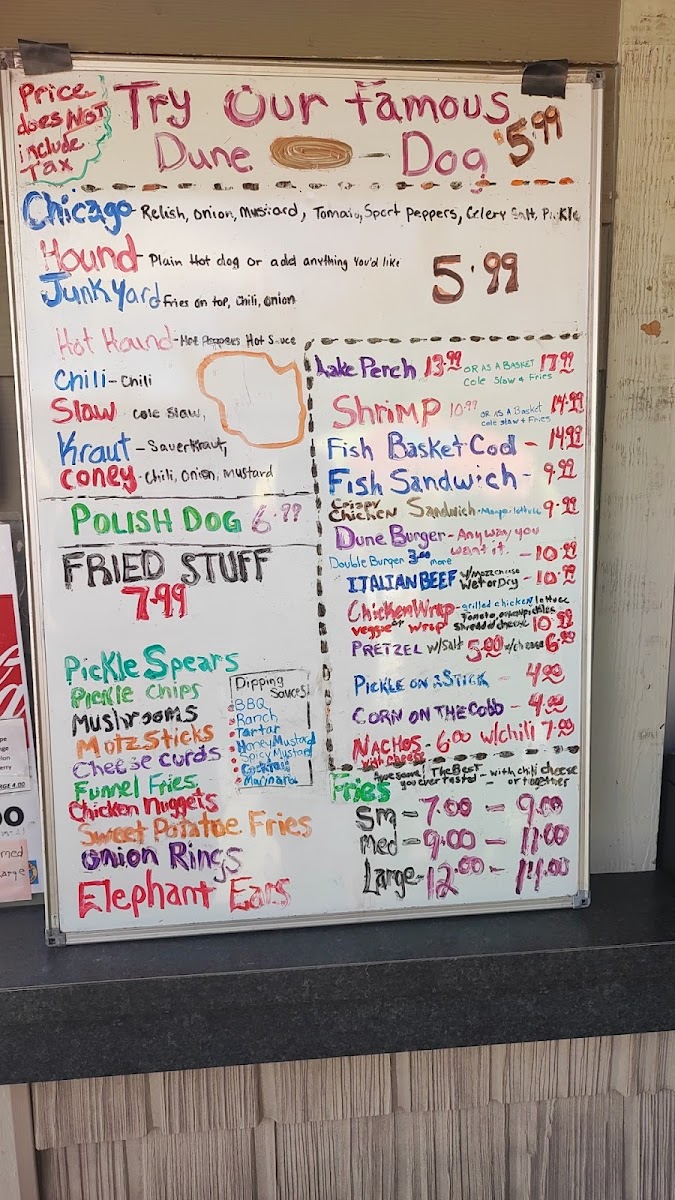 Price
does NOT
include
Tax
Try Our famous
Dune - Dog $5.99
Chicago - Relish, onion, Mustard, Tomato, Sport Peppers, Celery Salt, Pickle
Hound - Plain Hot dog or add anything You'd like
5.99
JunkYard Fries on top, Chili, onion
Hot Hound - Hot Peppers Hot Sauce
Chili - Chili
Slaw Cole Slaw,
Kraut - Sauerkraut,
Coney - Chili, Onion, Mustard
POLISH DOG 6.99
FRIED STUFF
7.99
Pickle Spears
Pickle Chips
Mushrooms
Motz Sticks
Cheese Curds
Funnel Fries
Chicken Nuggets
Sweet Potatoe Fries
Onion Rings
Elephant Ears
Dipping
Sauces!
BBQ
Ranch
Tartar
Honey Mustard
Spicy Mustard
Cocktail
Marinara
Lake Perch 13.99 OR AS A BASKET 17.99
Cole Slaw & Fries
Shrimp 10.99 OR AS A Basket 14.99
cole slaw & Fries
Fish Basket Cod - 14.99
Fish Sandwich - 9.99
Crispy
Chicken Sandwich - Mayo - lettuce 9.99
Dune Burger - Any way you
want it. - 10.99
Double Burger 3.00 more
ITALIAN BEEF w/Mozz cheese
Wet or Dry - 10.99
Chicken Wrap - grilled chicken lettuce
or veggie wrap shredded cheese 10.99
PRETZEL w/Salt 5.00 w/cheese 6.99
PICKLE ON a STICK - 4.00
CORN ON THE COBB - 4.00
NACHOS - 6.00 w/chili 7.99
with cheese
Fries
Awesome! The Best - with chili cheese
you ever tasted - or together
Sm - 7.00 - 9.00
Med - 9.00 - 11.00
Large - 12.00 - 14.00